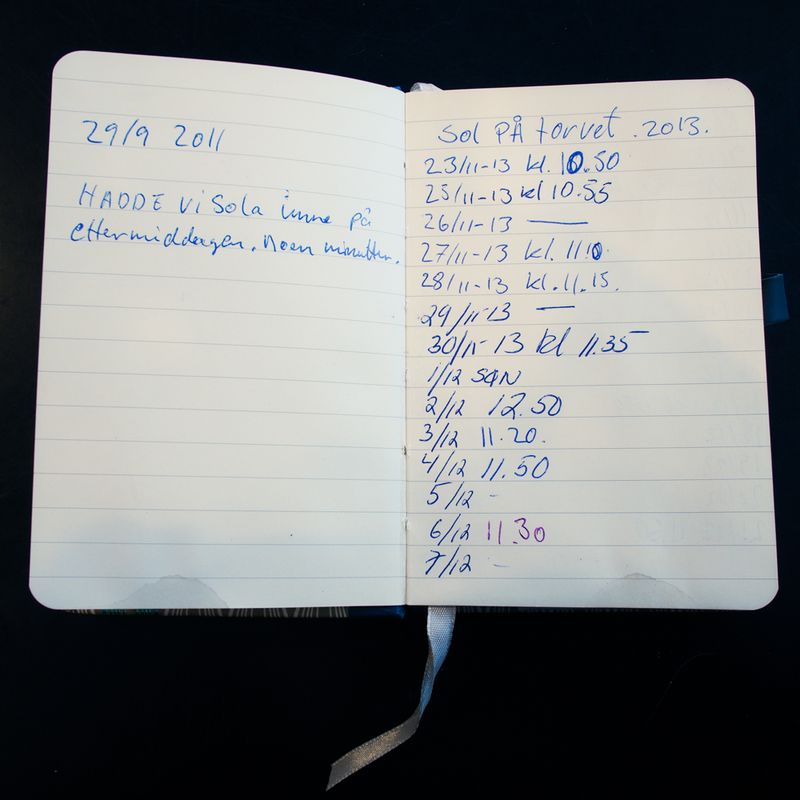 29/9 2011
HADDE Vi Sola inne på
ettermiddagen. Noen minutter.
Sol PÅ torvet . 2013.
23/11-13 kl. 10.50
25/11-13 kl 10.55
26/11-13 —
27/11-13 kl. 11.10
28/11-13 kl. 11.15.
29/11-13 —
30/11-13 kl 11.35
1/12 SØN
2/12 12.50
3/12 11.20.
4/12 11.50
5/12 -
6/12 11.30
7/12 -